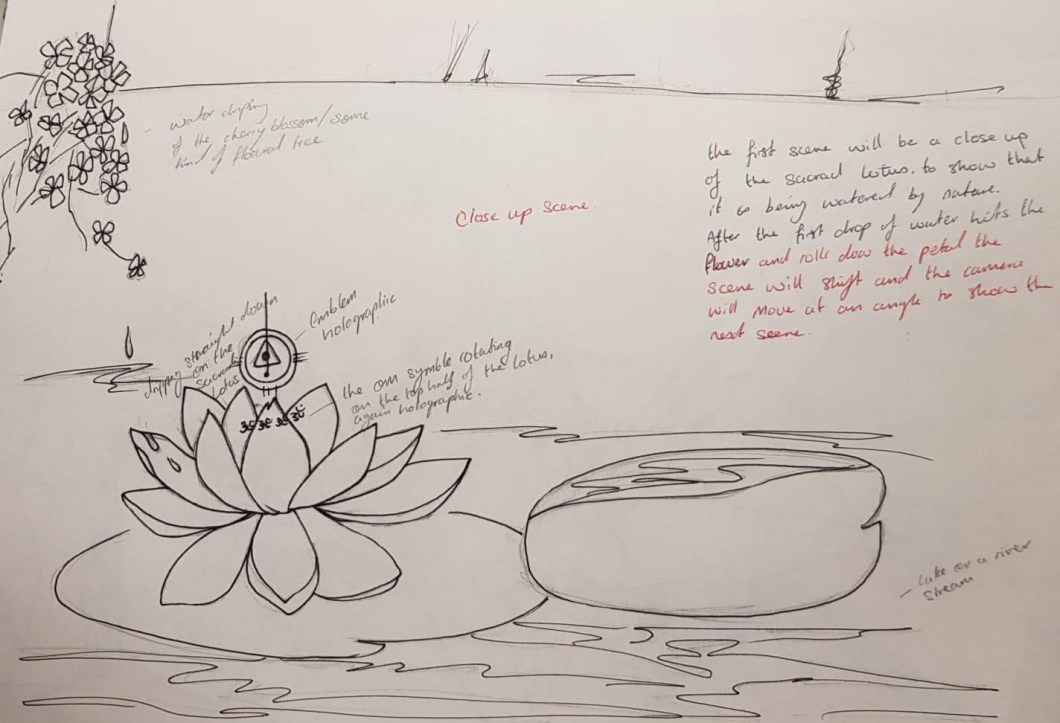 - water driping
of the cherry blossom/some
kind of floural tree
Close up scene.
the first scene will be a close up
of the sacrad Lotus. to show that
it is being watered by nature.
After the first drop of water hits the
flower and rolls dow the petal the
scene will shift and the camera
will move at an angle to show the
next scene.
Emblem
holographic
dripping straight down
on the
sacrad
Lotus
the om symble rotating
on the top half of the lotus,
again holographic.
ॐ ॐ ॐ ॐ
- Lake or a river
stream